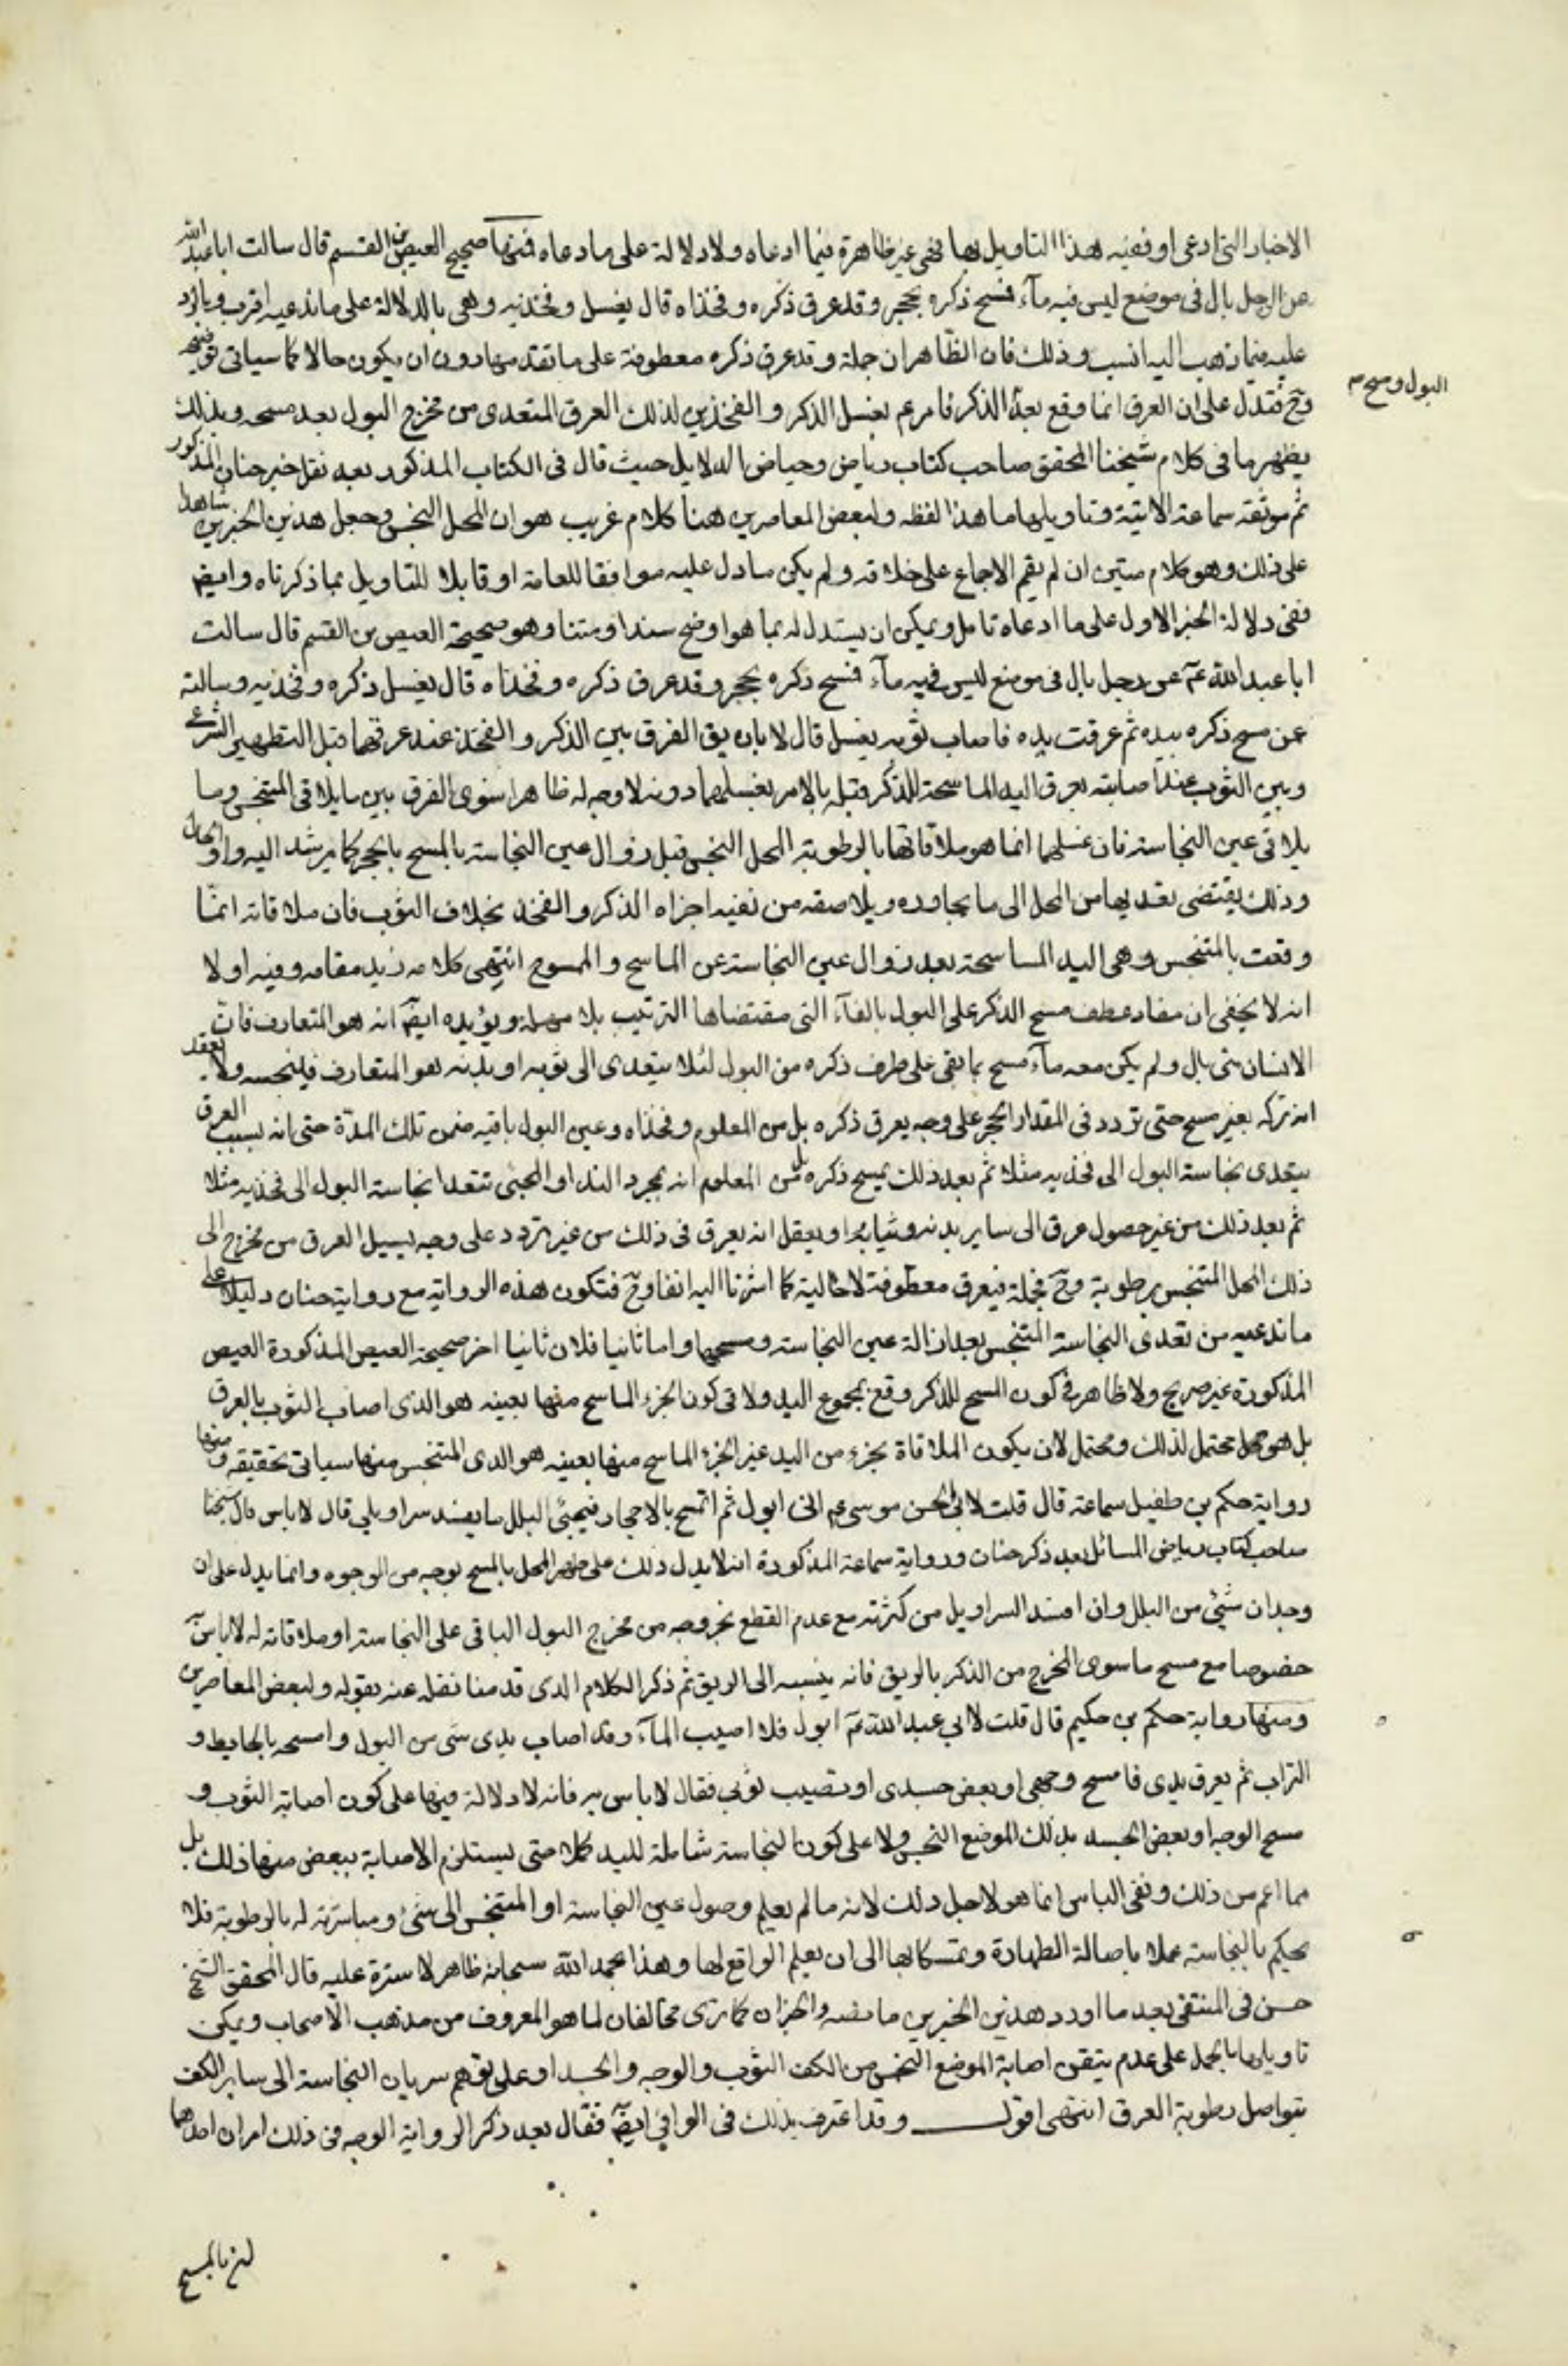 الاخبار التى ادعى او فعنيه هذا التاويل بها فهى غير ظاهرة فيما ادعاه ولا دلالة على ما دعاه فمنها صحيح العيص بن القسم قال سالت ابا عبد الله
عن الرجل بال فى موضع ليس فيه مآء فمسح ذكره بحجر وقد عرق ذكره وفخذاه قال يغسل وفخذيه وهى بالدلالة على ما ندعيه اقرب
عليه فيما ذهب اليه انسب وذلك فان الظاهر ان جملة وقد عرق ذكره معطوفة على ما تقدمها دون ان يكون حالا كما سياتى توضيحه
وح فتدل على ان العرق انما وقع بعد الذكر فامر عم بغسل الذكر والفخذين لذلك العرق المتعدى من مخرج البول بعد مسحه وبذلك
البول ومسح م
يظهر ما فى كلام شيخنا المحقق صاحب كتاب رياض وحياض الدلايل حيث قال فى الكتاب المذكور بعد نقل خبر حنان المذكور
ثم موثقة سماعة الاتية وتاويلهما ما هذا لفظه ولبعض المعاصرين هنا كلام غريب هو ان المحل النجس وجعل هذين الخبرين شاهدا
على ذلك وهو كلام متين ان لم يقم الاجماع على خلافه ولم يكن ما دل عليه موافقا للعامة او قابلا للتاويل بما ذكرناه وايضا
ففى دلالة الخبر الاول على ما ادعاه تامل ويمكن ان يستدل له بما هو اوضح سندا ومتنا وهو صحيحة العيص بن القسم قال سالت
ابا عبد الله عم عن رجل بال فى موضع ليس فيه مآء فمسح ذكره بحجر وقد عرق ذكره وفخذاه قال يغسل ذكره وفخذيه وسالته
عن مسح ذكره بيده ثم عرقت يده فاصاب ثوبه يغسل قال لا بان يق الفرق بين الذكر والفخذ عند عرقهما قبل التطهير الشرعى
وبين الثوب عند اصابته بعرق اليد الماسحة للذكر قبله بالامر بغسلهما دونه لا وجه له ظاهرا سوى الفرق بين ما يلاقى المتنجس وما
يلاقى عين النجاسة فان غسلهما انما هو ملاقاتها بالرطوبة المحل النجس قبل زوال عين النجاسة بالمسح بالحجر كما يرشد اليه واو الحال
وذلك يقتضى تعديها من المحل الى ما يجاوره ويلاصقه من نفيه اجزاه الذكر والفخذ بخلاف الثوب فان ملاقاته انما
وقعت بالمتنجس وهى اليد الماسحة بعد زوال عين النجاسة عن الماسح والممسوح انتهى كلامه زيد مقامه وفيه اولا
انه لا يخفى ان مفاد عطف مسح الذكر على البول بالفآء التى مقتضاها الترتيب بلا مهلة ويؤيده ايضا انه هو المتعارف فان
الانسان متى بال ولم يكن معه مآء مسح ما بقى على طرف ذكره من البول لئلا يتعدى الى ثوبه او بدنه هو المتعارف فينجسه ولا يعقد
انه تركه بغير مسح حتى تردد فى المقدار الحجر على وجه يعرق ذكره بل من المعلوم وفخذاه وعين البول باقيه ضمن تلك المدة حتى انه بسبب العرق
يتعدى نجاسة البول الى فخذيه مثلا ثم بعد ذلك يمسح ذكره بل من المعلوم انه بمجرد التداو المجئى تتعدا نجاسة البول الى فخذيه مثلا
ثم بعد ذلك من غير حصول عرق الى ساير بدنه وثيابه او يعقل انه يعرق فى ذلك من غير تردد على وجه يسيل العرق من مخرج الى
ذلك المحل المتنجس برطوبة وح فجملة فيعرق معطوفة لا حالية كما اشرنا اليه انفا وح فتكون هذه الرواية مع رواية حنان دليلا على
ما ندعيه من تعدى النجاسة المتنجس بعد ازالة عين النجاسة ومسحها واما ثانيا فلان ثانيا اخر صحيحة العيص المذكورة العيص
المذكورة غير صريح ولا ظاهر فى كون المسح للذكر وقع بمجموع اليد ولا فى كون الجزء الماسح منها بعينه هو الذى اصاب الثوب بالعرق
بل هو مجمل محتمل لذلك ومحتمل لان يكون الملاقاة بجزء من اليد غير الجزء الماسح منها بعينه هو الذى المتنجس منها سياتى تحقيقه ومنها
رواية حكم بن طفيل سماعة قال قلت لابى الحسن موسى عم انى ابول ثم اتمسح بالاحجار فيجئى البلل ما يفسد سراويلى قال لا باس قال شيخنا
صاحب كتاب رياض المسائل بعد ذكر حنان ورواية سماعة المذكورة انه لا يدل ذلك على طهر المحل بالمسح بوجه من الوجوه وانما يدل على ان
وجدان شئ من البلل وان افسد السراويل من كثرته مع عدم القطع بخروجه من مخرج البول الباقى على النجاسة او ملاقاته له لا باس به
خصوصا مع مسح ما سوى المخرج من الذكر بالريق فانه ينسبه الى الريق ثم ذكر الكلام الذى قدمنا نقله عنه بقوله ولبعض المعاصرين
ومنها رواية حكم بن حكيم قال قلت لابى عبد الله عم ابول فلا اصيب المآء وقد اصاب يدى شى من البول وامسحه بالحايط و
التراب ثم يعرق يدى فامسح وجهى او بعض جسدى او تصيب ثوبى فقال لا باس به فانه لا دلالة فيها على كون اصابة الثوب و
مسح الوجه او بعض الجسد بذلك الموضع النجس ولا على كون النجاسة شاملة لليد كلا حتى يستلزم الاصابة ببعض منها ذلك بل
هما اعم من ذلك ونفى الباس انما هو لاجل ذلك لانه ما لم يعلم وصول عين النجاسة او المتنجس الى شئ ومباشرته له بالرطوبة فلا
يحكم بالنجاسة عملا باصالة الطهارة وتمسكا بها الى ان يعلم الرافع لها وهذا بحمد الله سبحانه ظاهر لا سترة عليه قال المحقق الشيخ
حسن فى المنتقى بعد ما اورد هذين الخبرين ما نصه والخبران كما ترى مخالفان لما هو المعروف من مذهب الاصحاب ويمكن
تاويلهما بالحمل على عدم تيقن اصابة الموضع النجس من الكف الثوب والوجه والجسد او على توهم سريان النجاسة الى ساير الكف
بتواصل رطوبة العرق انتهى اقول وقد اعترف بذلك فى الوافي ايضا فقال بعد ذكر الرواية الوجه فى ذلك امران احدهما